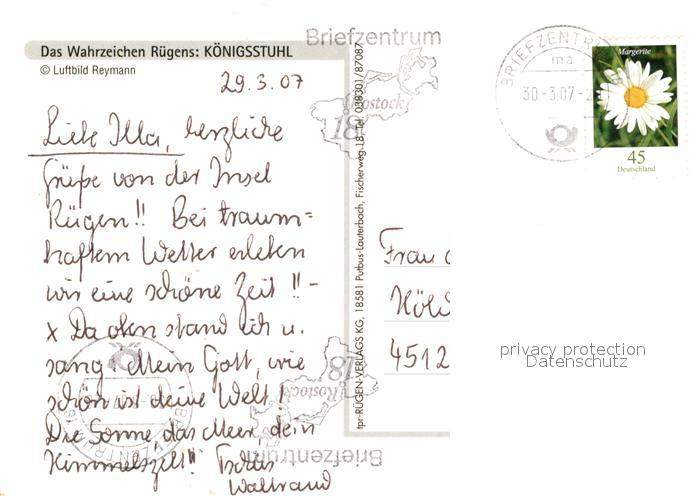 Briefzentrum
Das Wahrzeichen Rügens: KÖNIGSSTUHL
© Luftbild Reymann
29.3.07
Liebe Illa, herzliche
Grüße von der Insel
Rügen!! Bei traum=
haftem Wetter erleben
wir eine schöne Zeit!! –
x Da oben stand ich u.
sang: Mein Gott, wie
schön ist deine Welt!
Die Sonne, das Meer, dein
Himmelszelt!! Tschüs
Waltraud
Rostock
18
Rostock
18
Briefzentrum
tpr-RÜGEN-VERLAGS KG, 18581 Putbus-Lauterbach, Fischerweg 18, Tel. 038301/87087
BRIEFZENTR
ma
30-3.07-2
Margerite
45
Deutschland
Frau
Höld
4512
privacy protection
Datenschutz